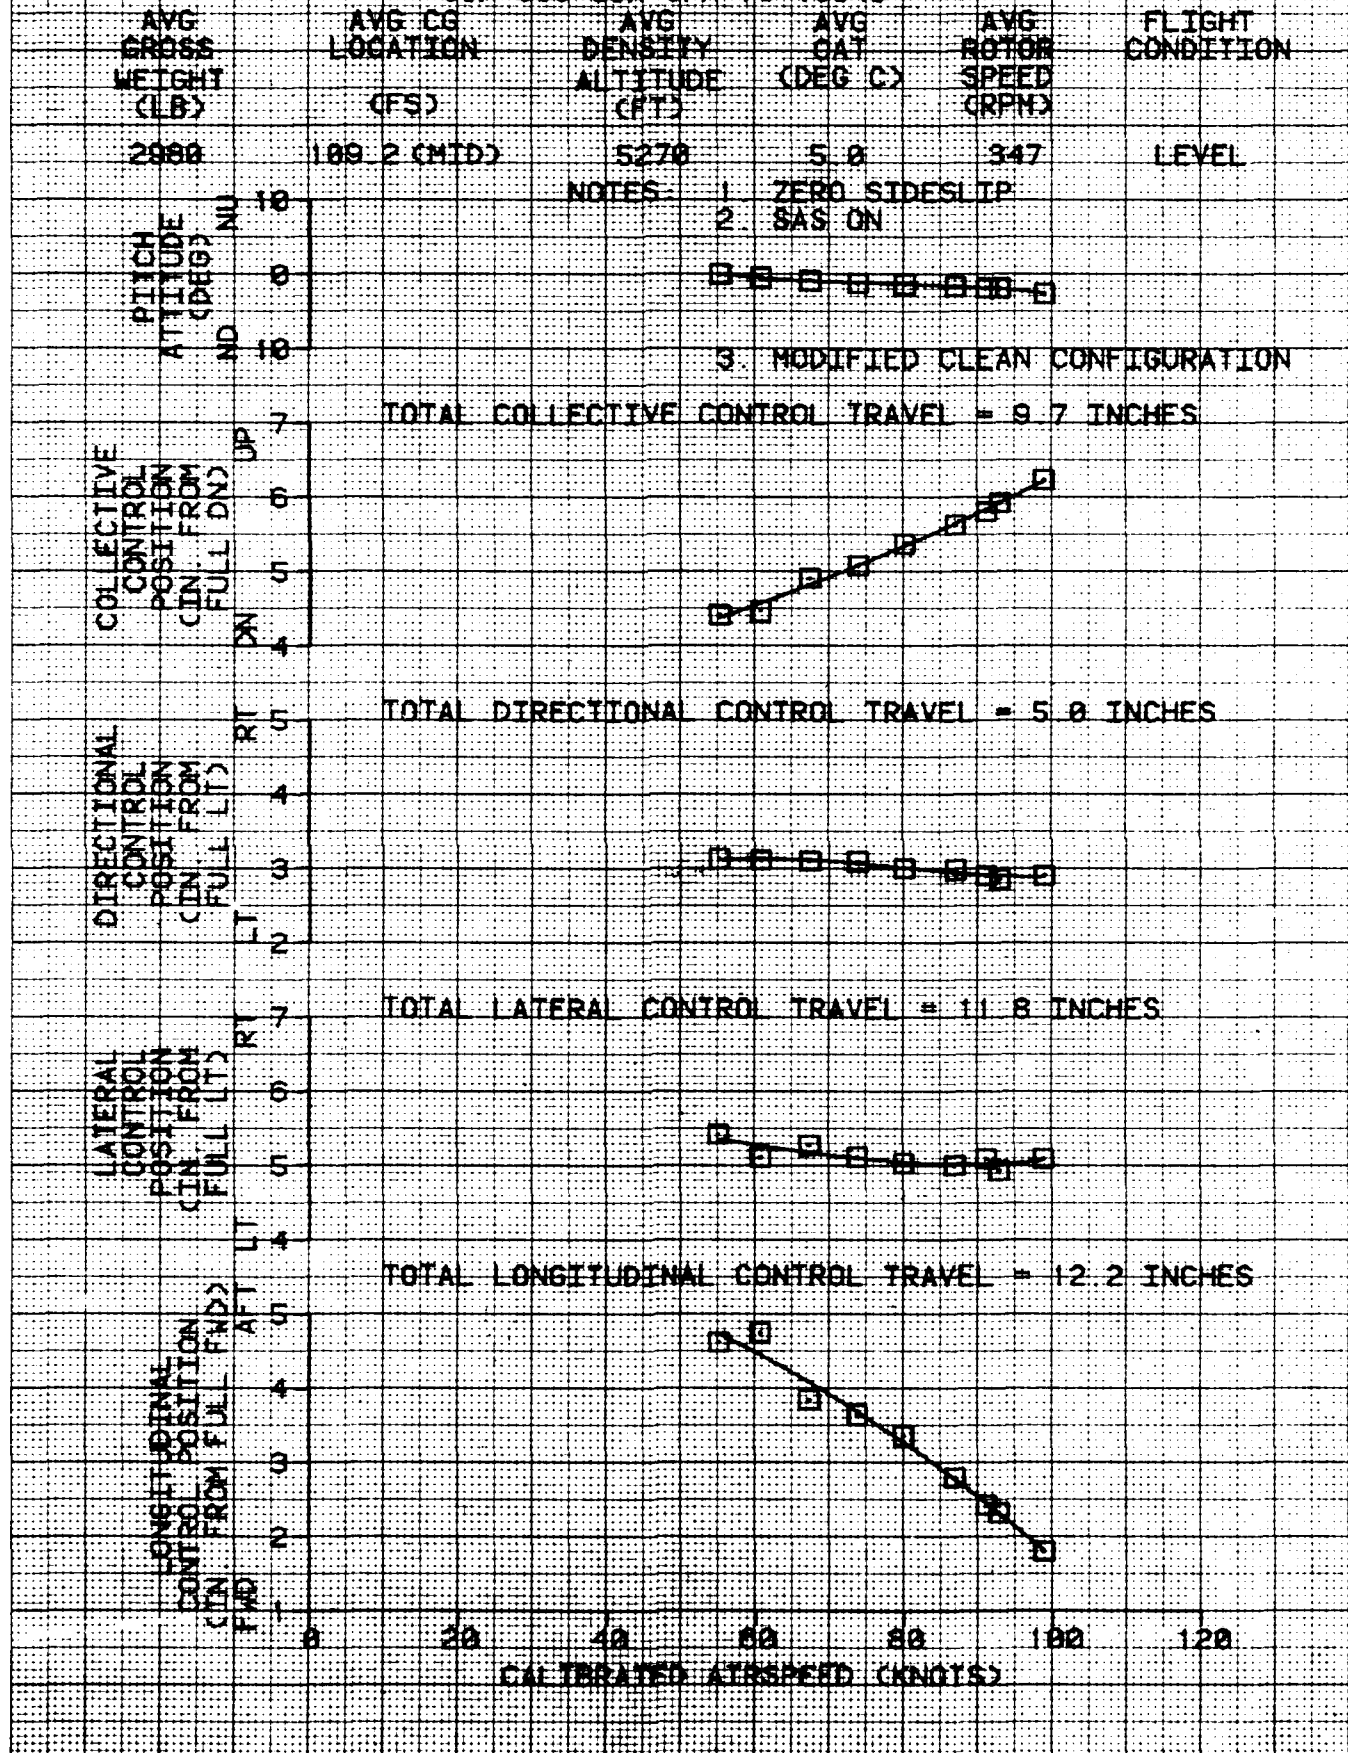 AVG AVG CG AVG AVG AVG FLIGHT
GROSS LOCATION DENSITY OAT ROTOR CONDITION
WEIGHT ALTITUDE (DEG C) SPEED
(LB) (FS) (FT) (RPM)
2980 109.2 (MID) 5270 5.0 347 LEVEL
NOTES: 1. ZERO SIDESLIP
2. SAS ON
3. MODIFIED CLEAN CONFIGURATION
PITCH
ATTITUDE
(DEG)
ND NU
10
0
10
TOTAL COLLECTIVE CONTROL TRAVEL = 9.7 INCHES
COLLECTIVE
CONTROL
POSITION
(IN. FROM
FULL DN)
DN UP
7
6
5
4
TOTAL DIRECTIONAL CONTROL TRAVEL = 5.0 INCHES
DIRECTIONAL
CONTROL
POSITION
(IN. FROM
FULL LT)
LT RT
5
4
3
2
TOTAL LATERAL CONTROL TRAVEL = 11.8 INCHES
LATERAL
CONTROL
POSITION
(IN FROM
FULL LT)
LT RT
7
6
5
4
TOTAL LONGITUDINAL CONTROL TRAVEL = 12.2 INCHES
LONGITUDINAL
CONTROL POSITION
(IN FROM FULL FWD)
FWD AFT
5
4
3
2
1
0 20 40 60 80 100 120
CALIBRATED AIRSPEED (KNOTS)